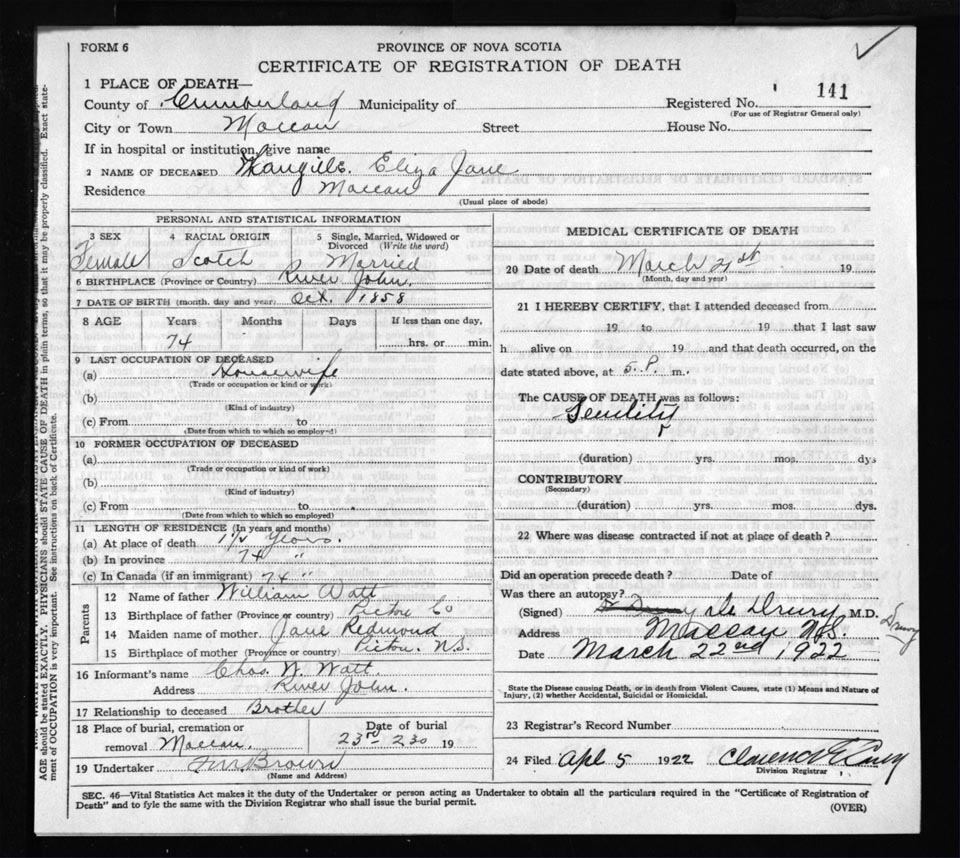 FORM 6
PROVINCE OF NOVA SCOTIA
CERTIFICATE OF REGISTRATION OF DEATH
1 PLACE OF DEATH—
County of Cumberland Municipality of Registered No. 141
(For use of Registrar General only)
City or Town Maccan Street House No.
If in hospital or institution, give name
2 NAME OF DECEASED Eliza Jane
Residence Maccan
(Usual place of abode)
PERSONAL AND STATISTICAL INFORMATION
3 SEX 4 RACIAL ORIGIN 5 Single, Married, Widowed or Divorced (Write the word)
Female Scotch Married
6 BIRTHPLACE (Province or Country) River John.
7 DATE OF BIRTH (month, day and year) Oct. 1858
8 AGE Years Months Days If less than one day,
74 hrs. or min.
9 LAST OCCUPATION OF DECEASED
(a) Housewife
(Trade or occupation or kind or work)
(b)
(Kind of industry)
(c) From to
(Date from which to which so employed)
10 FORMER OCCUPATION OF DECEASED
(a)
(Trade or occupation or kind of work)
(b)
(Kind of industry)
(c) From to
(Date from which to which so employed)
11 LENGTH OF RESIDENCE (In years and months)
(a) At place of death 1½ Years.
(b) In province 74 "
(c) In Canada (if an immigrant) 74 "
Parents
12 Name of father William Watt
13 Birthplace of father (Province or country) Pictou Co
14 Maiden name of mother Jane Redmond
15 Birthplace of mother (Province or country) Pictou. N.S.
16 Informant's name Chas. W. Watt
Address River John.
17 Relationship to deceased Brother
18 Place of burial, cremation or removal Maccan. Date of burial 23rd 230 19
19 Undertaker Brown
(Name and Address)
MEDICAL CERTIFICATE OF DEATH
20 Date of death March 21st 19
(Month, day and year)
21 I HEREBY CERTIFY, that I attended deceased from
19 to 19 that I last saw
h alive on 192 and that death occurred, on the
date stated above, at 5. P. m.
The CAUSE OF DEATH was as follows:
Senility
(duration) yrs. mos. dys
CONTRIBUTORY
(Secondary)
(duration) yrs. mos. dys.
22 Where was disease contracted if not at place of death?
Did an operation precede death? Date of
Was there an autopsy?
(Signed) Drury M.D. Drury
Address Maccan N.S.
Date March 22nd 1922
State the Disease causing Death, or in death from Violent Causes, state (1) Means and Nature of
Injury, (2) whether Accidental, Suicidal or Homicidal.
23 Registrar's Record Number
24 Filed Apl 5 1922 Clarence
Division Registrar
SEC. 46—Vital Statistics Act makes it the duty of the Undertaker or person acting as Undertaker to obtain all the particulars required in the "Certificate of Registration of
Death" and to fyle the same with the Division Registrar who shall issue the burial permit.
(OVER)
AGE should be stated EXACTLY. PHYSICIANS should STATE CAUSE OF DEATH in plain terms, so that it may be properly classified. Exact state-
ment of OCCUPATION is very important. See instructions on back of Certificate.